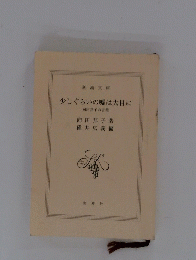 新潮文庫
少しぐらいの嘘は大目に
向田邦子の言葉
向田邦子著
碓井広義編
新潮社